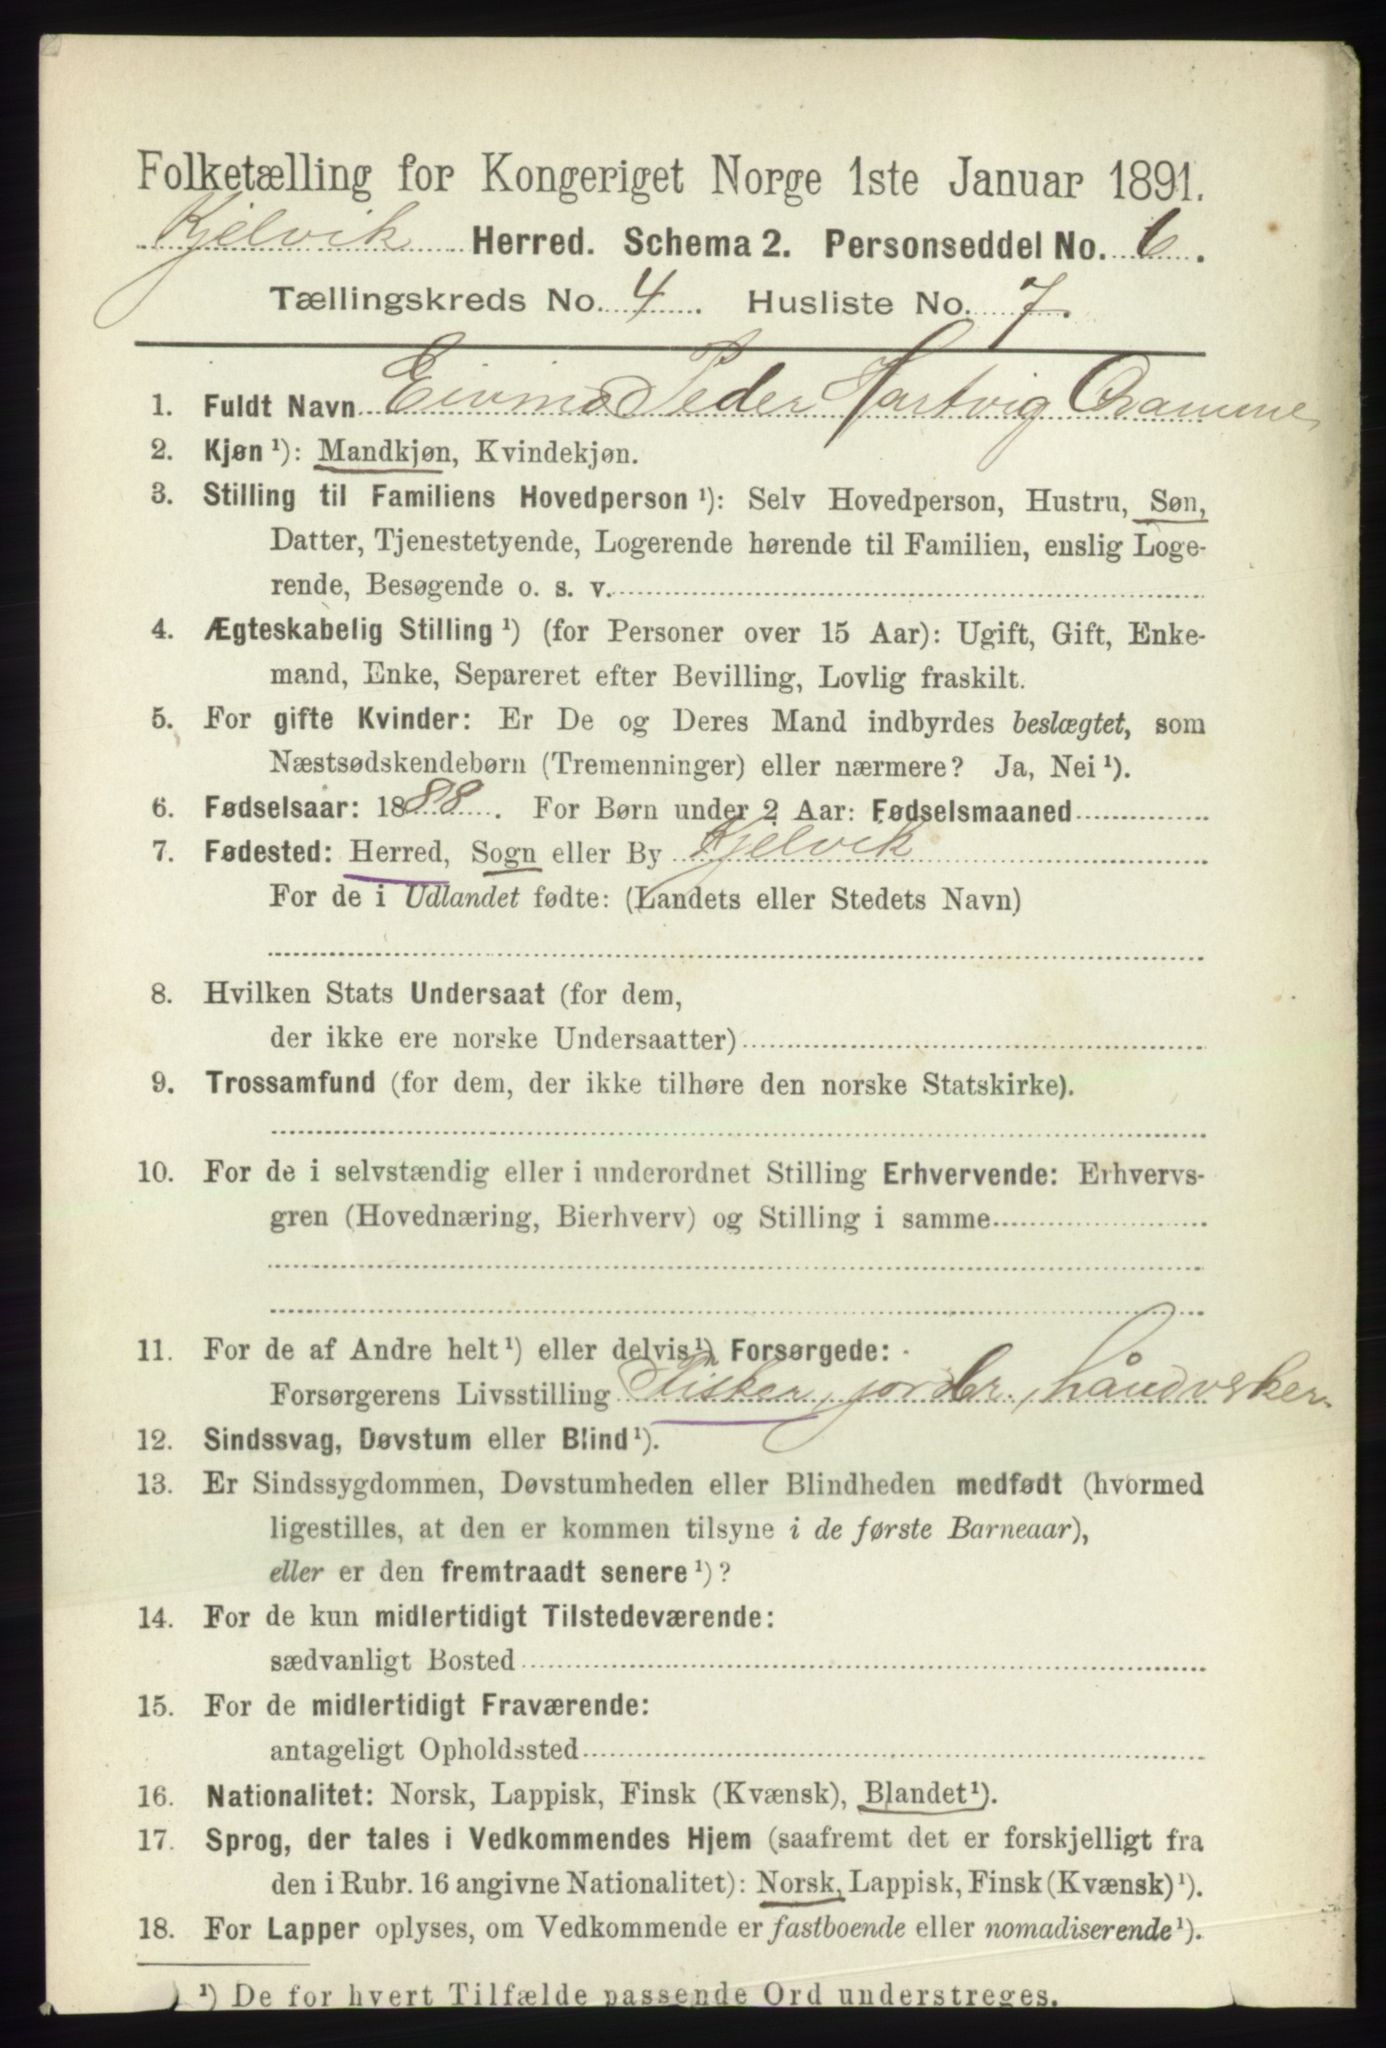 Folketælling for Kongeriget Norge 1ste Januar 1891.
Kjelvik Herred. Schema 2. Personseddel No. 6.
Tællingskreds No. 4. Husliste No. 7.
1. Fuldt Navn Eivind Peder Hartvig Cramme
2. Kjøn ¹): Mandkjøn, Kvindekjøn.
3. Stilling til Familiens Hovedperson ¹): Selv Hovedperson, Hustru, Søn,
Datter, Tjenestetyende, Logerende hørende til Familien, enslig Loge-
rende, Besøgende o. s. v.
4. Ægteskabelig Stilling ¹) (for Personer over 15 Aar): Ugift, Gift, Enke-
mand, Enke, Separeret efter Bevilling, Lovlig fraskilt.
5. For gifte Kvinder: Er De og Deres Mand indbyrdes beslægtet, som
Næstsødskendebørn (Tremenninger) eller nærmere? Ja, Nei ¹).
6. Fødselsaar: 1888. For Børn under 2 Aar: Fødselsmaaned
7. Fødested: Herred, Sogn eller By Kjelvik
For de i Udlandet fødte: (Landets eller Stedets Navn)
8. Hvilken Stats Undersaat (for dem,
der ikke ere norske Undersaatter)
9. Trossamfund (for dem, der ikke tilhøre den norske Statskirke).
10. For de i selvstændig eller i underordnet Stilling Erhvervende: Erhvervs-
gren (Hovednæring, Bierhverv) og Stilling i samme
11. For de af Andre helt ¹) eller delvis ¹) Forsørgede:
Forsørgerens Livsstilling Fisker, jordbr., håndverker
12. Sindssvag, Døvstum eller Blind ¹).
13. Er Sindssygdommen, Døvstumheden eller Blindheden medfødt (hvormed
ligestilles, at den er kommen tilsyne i de første Barneaar),
eller er den fremtraadt senere ¹)?
14. For de kun midlertidigt Tilstedeværende:
sædvanligt Bosted
15. For de midlertidigt Fraværende:
antageligt Opholdssted
16. Nationalitet: Norsk, Lappisk, Finsk (Kvænsk), Blandet ¹).
17. Sprog, der tales i Vedkommendes Hjem (saafremt det er forskjelligt fra
den i Rubr. 16 angivne Nationalitet): Norsk, Lappisk, Finsk (Kvænsk) ¹).
18. For Lapper oplyses, om Vedkommende er fastboende eller nomadiserende ¹).
¹) De for hvert Tilfælde passende Ord understreges.